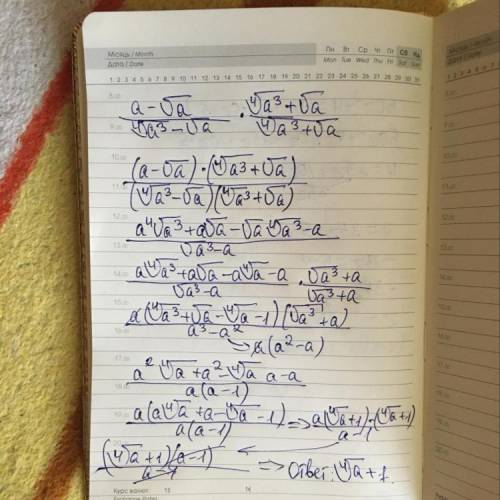 Місяць / Month
Дата / Date
Пн Вт Ср Чт Пт Сб Нд
Mon Tue Wed Thu Fri Sat Sun
Місяць / Month
Дата / Date
1 2 3 4 5 6 7 8 9 10 11 12 13 14 15 16 17 18 19 20 21 22 23 24 25 26 27 28 29 30 31
(a-√a)/(⁴√a³-√a) · (⁴√a³+√a)/(⁴√a³+√a)
((a-√a)·(⁴√a³+√a))/((⁴√a³-√a)(⁴√a³+√a))
(a⁴√a³+a√a-√a⁴√a³-a)/(√a³-a)
(a⁴√a³+a√a-a⁴√a-a)/(√a³-a) · (√a³+a)/(√a³+a)
a(⁴√a³+√a-⁴√a-1)(√a³+a)/(a³-a²) → a(a²-a)
(a² ⁴√a+a²-⁴√a a-a)/(a(a-1))
a(a⁴√a+a-⁴√a-1)/(a(a-1)) => (a(⁴√a+1)-(⁴√a+1))/(a-1)
((⁴√a+1)(a-1))/(a-1) => Ответ: ⁴√a+1.
Курс валют 15 16